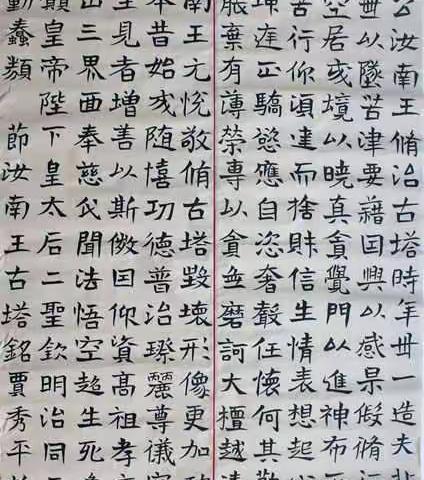 公汝南王脩治古塔時年卅一造夫非
以墜苦津要藉囙興以感果假脩
空居或境以曉真貪覺門以進神布
苦行你湏達而捨財信生情表想起
坤遅正驕慾應自恣奢毄任懷何其
脹棄有薄榮專以貪無磨訶大檀越清
南王元悅敬脩古塔毀壞形像更加
本昔始成随憘功德普治瑧麗尊儀容
至見者增善以斯儌囙仰資高祖孝
三界面奉慈氏聞法悟空超生死
顛皇帝陛下皇太后二聖欽明治同
動蠢類節汝南王古塔銘賈秀平